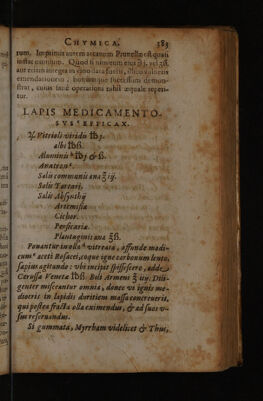 CHYMICA. 383
rum. Imprimis autem arcanum Prunellæ est quasi
instar omnium. Quod si nimium eius ʒj. vel ʒß.
aut etiam integra
emendatiorem
strat, cuius tanè operationi nihil æquale reperi-
tur.
LAPIS MEDICAMENTO-
SVS EFFICAX.
♃. Vitrioli viridis ℔j.
albi ℔ß.
Aluminis ℔j & ß.
Anatron
Salis communis ana ℥iij.
Salis Tartari.
Salis Absynthij
Artemisiæ
Cichor.
Persicariæ
Plantaginis ana ℥ß.
Ponantur in olla vitreata, affunde modi-
cum aceti Rosacei, coque igne carbonum lento,
sæpius agitando: vbi incipit spissescere, adde
Cerussæ Venetæ ℔ß Boli Armeni ℥iiij. Dili-
genter misceantur omnia, donec vi ignis me-
diocris in lapidis duritiem massa concreuerit,
qui postea fracta olla eximendus, & ad suos v-
sus reseruandus.
Si gummata, Myrrham videlicet & Thus,